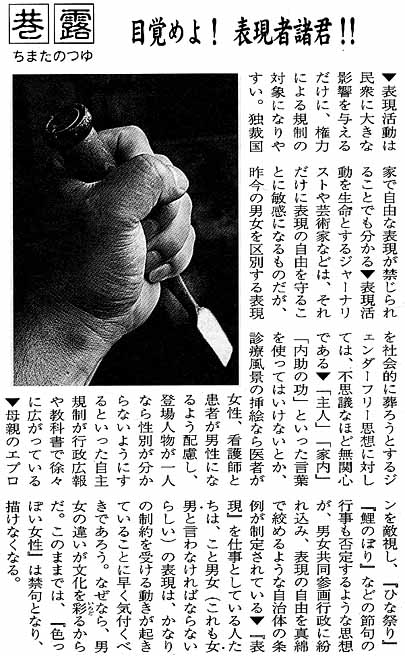 巷露
ちまたのつゆ
目覚めよ！ 表現者諸君!!
▼表現活動は
民衆に大きな
影響を与える
だけに、権力
による規制の
対象になりや
すい。独裁国
家で自由な表現が禁じられ
ることでも分かる▼表現活
動を生命とするジャーナリ
ストや芸術家などは、それ
だけに表現の自由を守るこ
とに敏感になるものだが、
昨今の男女を区別する表現
を社会的に葬ろうとするジ
ェンダーフリー思想に対し
ては、不思議なほど無関心
である▼「主人」「家内」
「内助の功」といった言葉
を使ってはいけないとか、
診療風景の挿絵なら医者が
女性、看護師と
患者が男性にな
るよう配慮し、
登場人物が一人
なら性別が分か
らないようにす
るといった自主
規制が行政広報
や教科書で徐々
に広がっている
▼母親のエプロ
ンを敵視し、『ひな祭り』
『鯉のぼり』などの節句の
行事も否定するような思想
が、男女共同参画行政に紛
れ込み、表現の自由を真綿
で絞めるような自治体の条
例が制定されている▼『表
現』を仕事としている人た
ちは、こと男女（これも女
男と言わなければならない
らしい）の表現は、かなり
の制約を受ける動きが起き
ていることに早く気付くべ
きであろう。なぜなら、男
女の違いが文化を彩るから
いろど
だ。このままでは、『色っ
ぽい女性』は禁句となり、
描けなくなる。